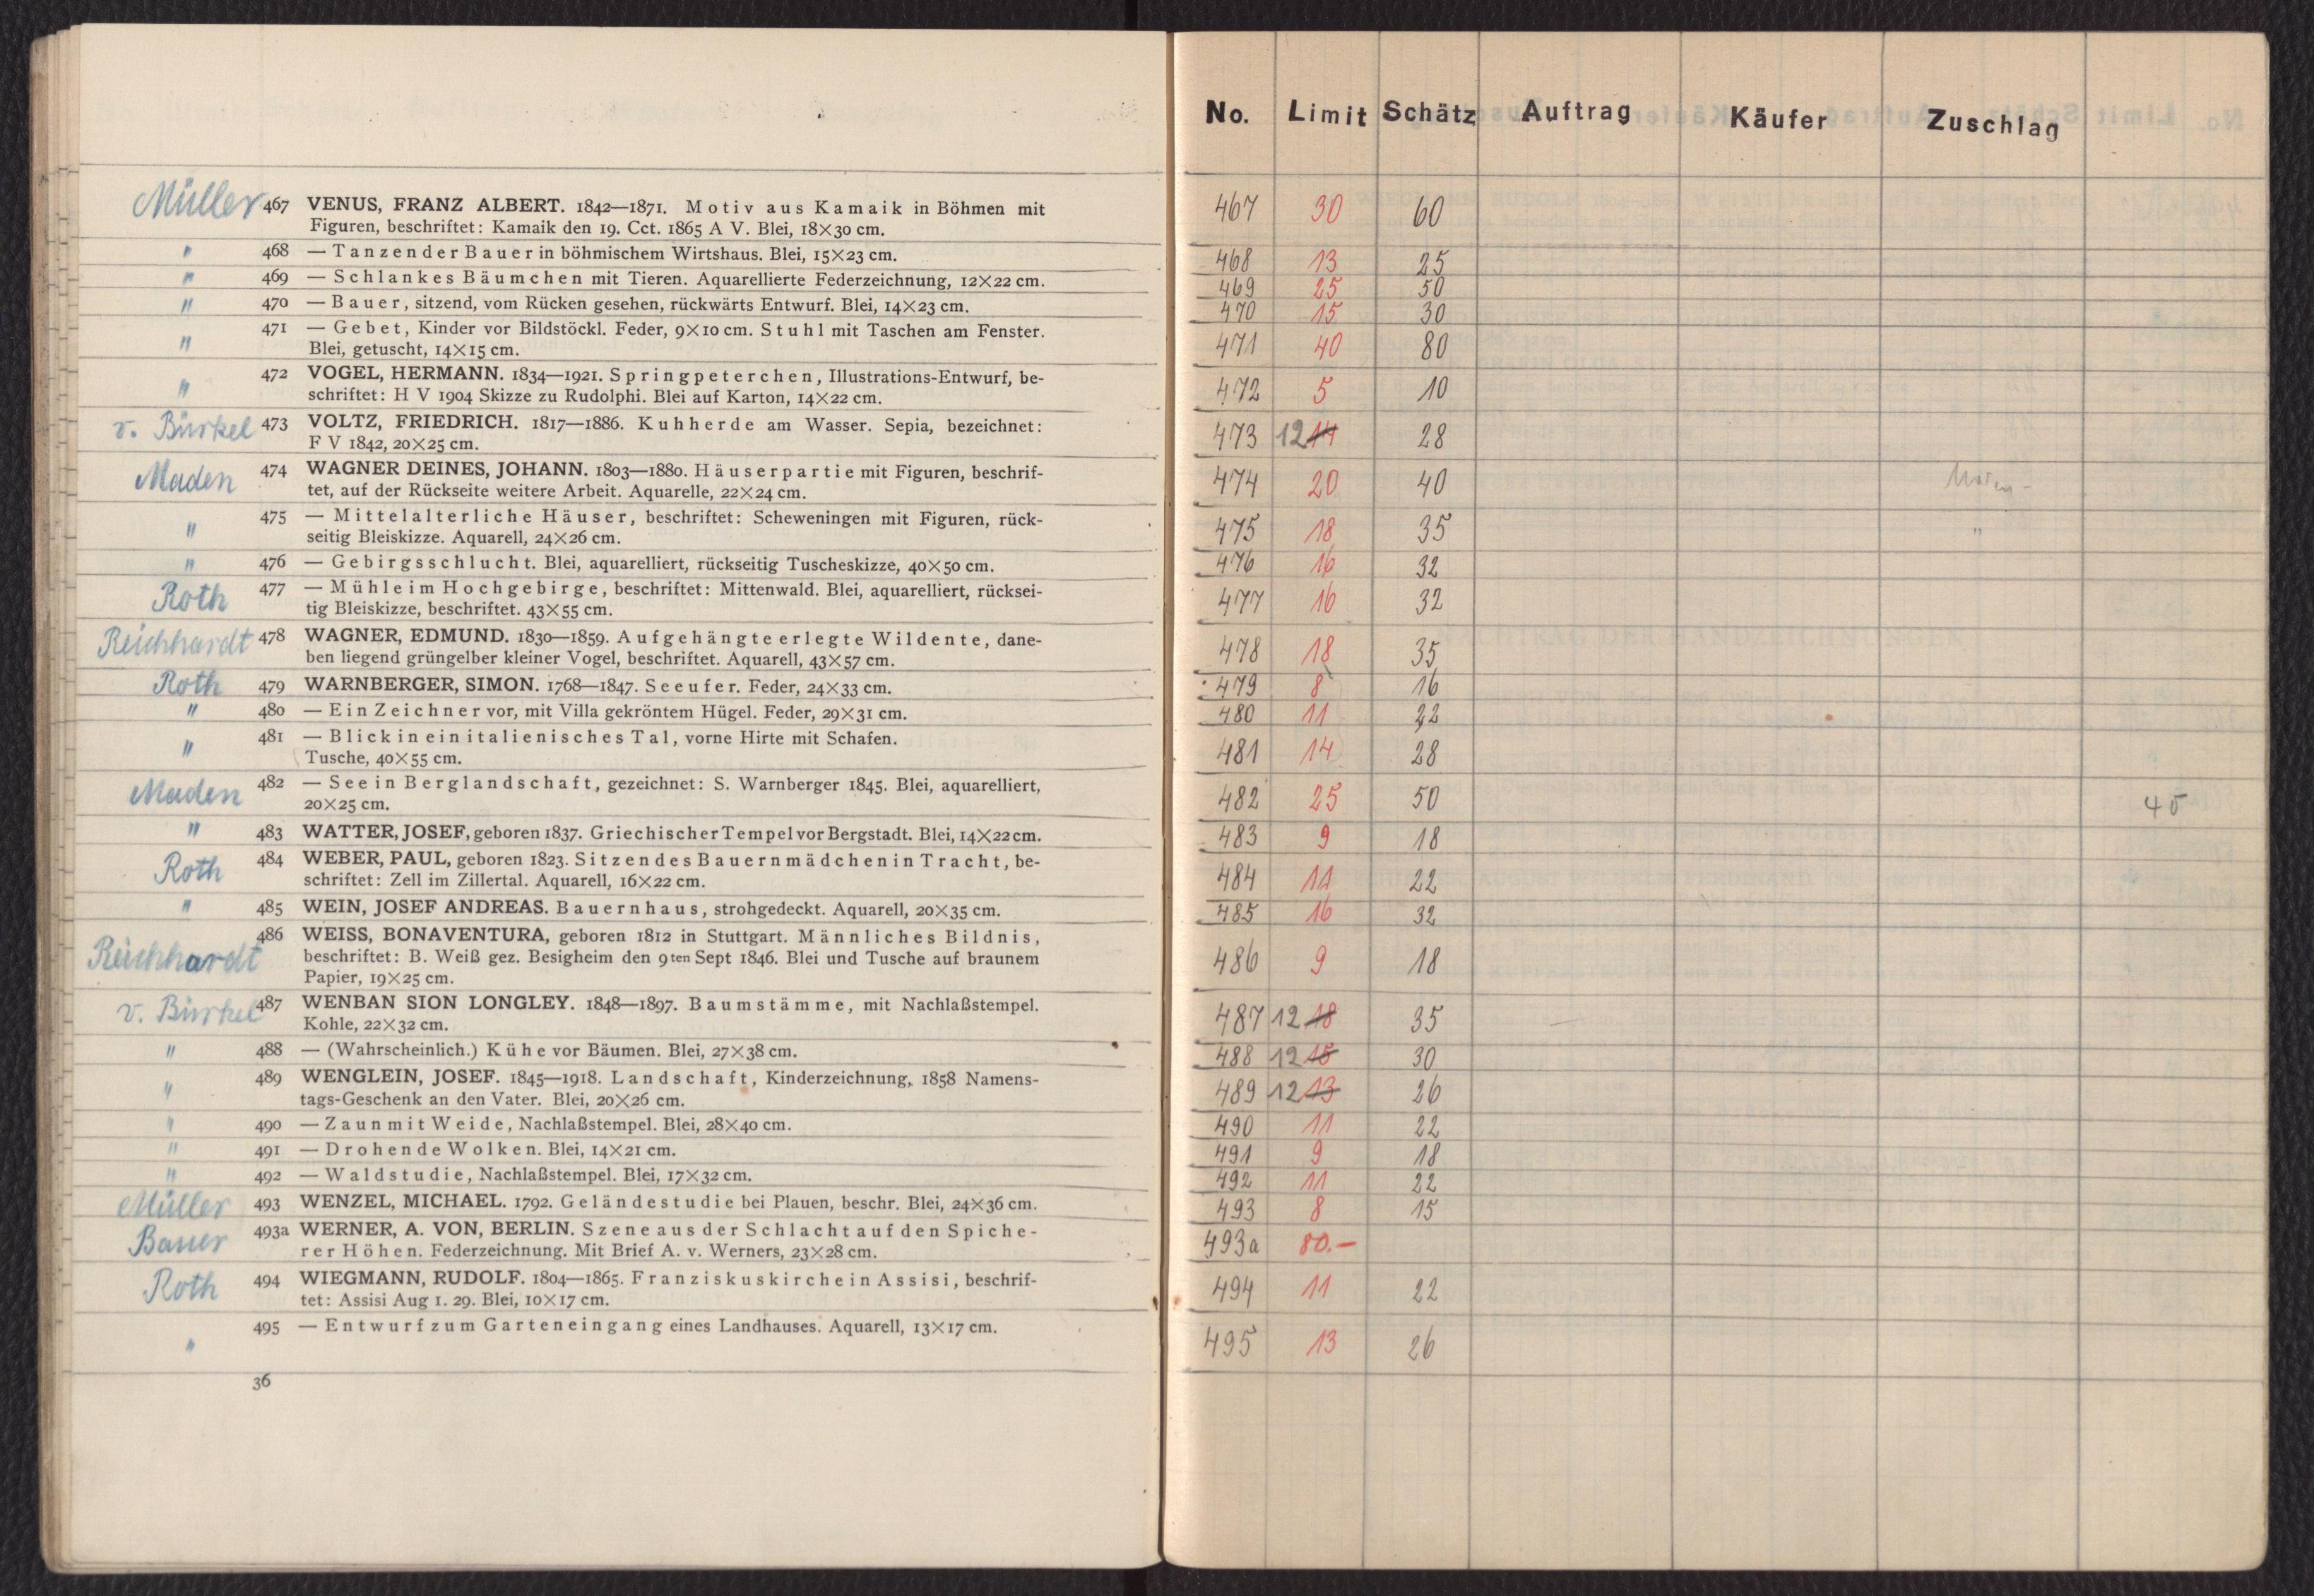 Müller 467 VENUS, FRANZ ALBERT. 1842—1871. Motiv aus Kamaik in Böhmen mit
Figuren, beschriftet: Kamaik den 19. Cct. 1865 A V. Blei, 18×30 cm.
" 468 — Tanzender Bauer in böhmischem Wirtshaus. Blei, 15×23 cm.
" 469 — Schlankes Bäumchen mit Tieren. Aquarellierte Federzeichnung, 12×22 cm.
" 470 — Bauer, sitzend, vom Rücken gesehen, rückwärts Entwurf. Blei, 14×23 cm.
" 471 — Gebet, Kinder vor Bildstöckl. Feder, 9×10 cm. Stuhl mit Taschen am Fenster.
Blei, getuscht, 14×15 cm.
" 472 VOGEL, HERMANN. 1834—1921. Springpeterchen, Illustrations-Entwurf, be-
schriftet: H V 1904 Skizze zu Rudolphi. Blei auf Karton, 14×22 cm.
v. Bürkel 473 VOLTZ, FRIEDRICH. 1817—1886. Kuhherde am Wasser. Sepia, bezeichnet:
F V 1842, 20×25 cm.
Maden 474 WAGNER DEINES, JOHANN. 1803—1880. Häuserpartie mit Figuren, beschrif-
tet, auf der Rückseite weitere Arbeit. Aquarelle, 22×24 cm.
" 475 — Mittelalterliche Häuser, beschriftet: Scheweningen mit Figuren, rück-
seitig Bleiskizze. Aquarell, 24×26 cm.
" 476 — Gebirgsschlucht. Blei, aquarelliert, rückseitig Tuscheskizze, 40×50 cm.
Roth 477 — Mühle im Hochgebirge, beschriftet: Mittenwald. Blei, aquarelliert, rücksei-
tig Bleiskizze, beschriftet. 43×55 cm.
Reichhardt 478 WAGNER, EDMUND. 1830—1859. Aufgehängte erlegte Wildente, dane-
ben liegend grüngelber kleiner Vogel, beschriftet. Aquarell, 43×57 cm.
Roth 479 WARNBERGER, SIMON. 1768—1847. Seeufer. Feder, 24×33 cm.
" 480 — Ein Zeichner vor, mit Villa gekröntem Hügel. Feder, 29×31 cm.
" 481 — Blick in ein italienisches Tal, vorne Hirte mit Schafen.
Tusche, 40×55 cm.
Maden 482 — See in Berglandschaft, gezeichnet: S. Warnberger 1845. Blei, aquarelliert,
20×25 cm.
" 483 WATTER, JOSEF, geboren 1837. Griechischer Tempel vor Bergstadt. Blei, 14×22 cm.
Roth 484 WEBER, PAUL, geboren 1823. Sitzendes Bauernmädchen in Tracht, be-
schriftet: Zell im Zillertal. Aquarell, 16×22 cm.
" 485 WEIN, JOSEF ANDREAS. Bauernhaus, strohgedeckt. Aquarell, 20×35 cm.
Reichhardt 486 WEISS, BONAVENTURA, geboren 1812 in Stuttgart. Männliches Bildnis,
beschriftet: B. Weiß gez. Besigheim den 9ten Sept 1846. Blei und Tusche auf braunem
Papier, 19×25 cm.
v. Bürkel 487 WENBAN SION LONGLEY. 1848—1897. Baumstämme, mit Nachlaßstempel.
Kohle, 22×32 cm.
" 488 — (Wahrscheinlich.) Kühe vor Bäumen. Blei, 27×38 cm.
" 489 WENGLEIN, JOSEF. 1845—1918. Landschaft, Kinderzeichnung, 1858 Namens-
tags-Geschenk an den Vater. Blei, 20×26 cm.
" 490 — Zaun mit Weide, Nachlaßstempel. Blei, 28×40 cm.
" 491 — Drohende Wolken. Blei, 14×21 cm.
" 492 — Waldstudie, Nachlaßstempel. Blei, 17×32 cm.
Müller 493 WENZEL, MICHAEL. 1792. Geländestudie bei Plauen, beschr. Blei, 24×36 cm.
Bauer 493a WERNER, A. VON, BERLIN. Szene aus der Schlacht auf den Spiche-
rer Höhen. Federzeichnung. Mit Brief A. v. Werners, 23×28 cm.
Roth 494 WIEGMANN, RUDOLF. 1804—1865. Franziskuskirche in Assisi, beschrif-
tet: Assisi Aug 1. 29. Blei, 10×17 cm.
" 495 — Entwurf zum Garteneingang eines Landhauses. Aquarell, 13×17 cm.
36
No. Limit Schätz Auftrag Käufer Zuschlag
467 30 60
468 13 25
469 25 50
470 15 30
471 40 80
472 5 10
473 12 14 28
474 20 40
475 18 35 "
476 16 32
477 16 32
478 18 35
479 8 16
480 11 22
481 14 28
482 25 50 45
483 9 18
484 11 22
485 16 32
486 9 18
487 12 18 35
488 12 15 30
489 12 13 26
490 11 22
491 9 18
492 11 22
493 8 15
493a 80.—
494 11 22
495 13 26